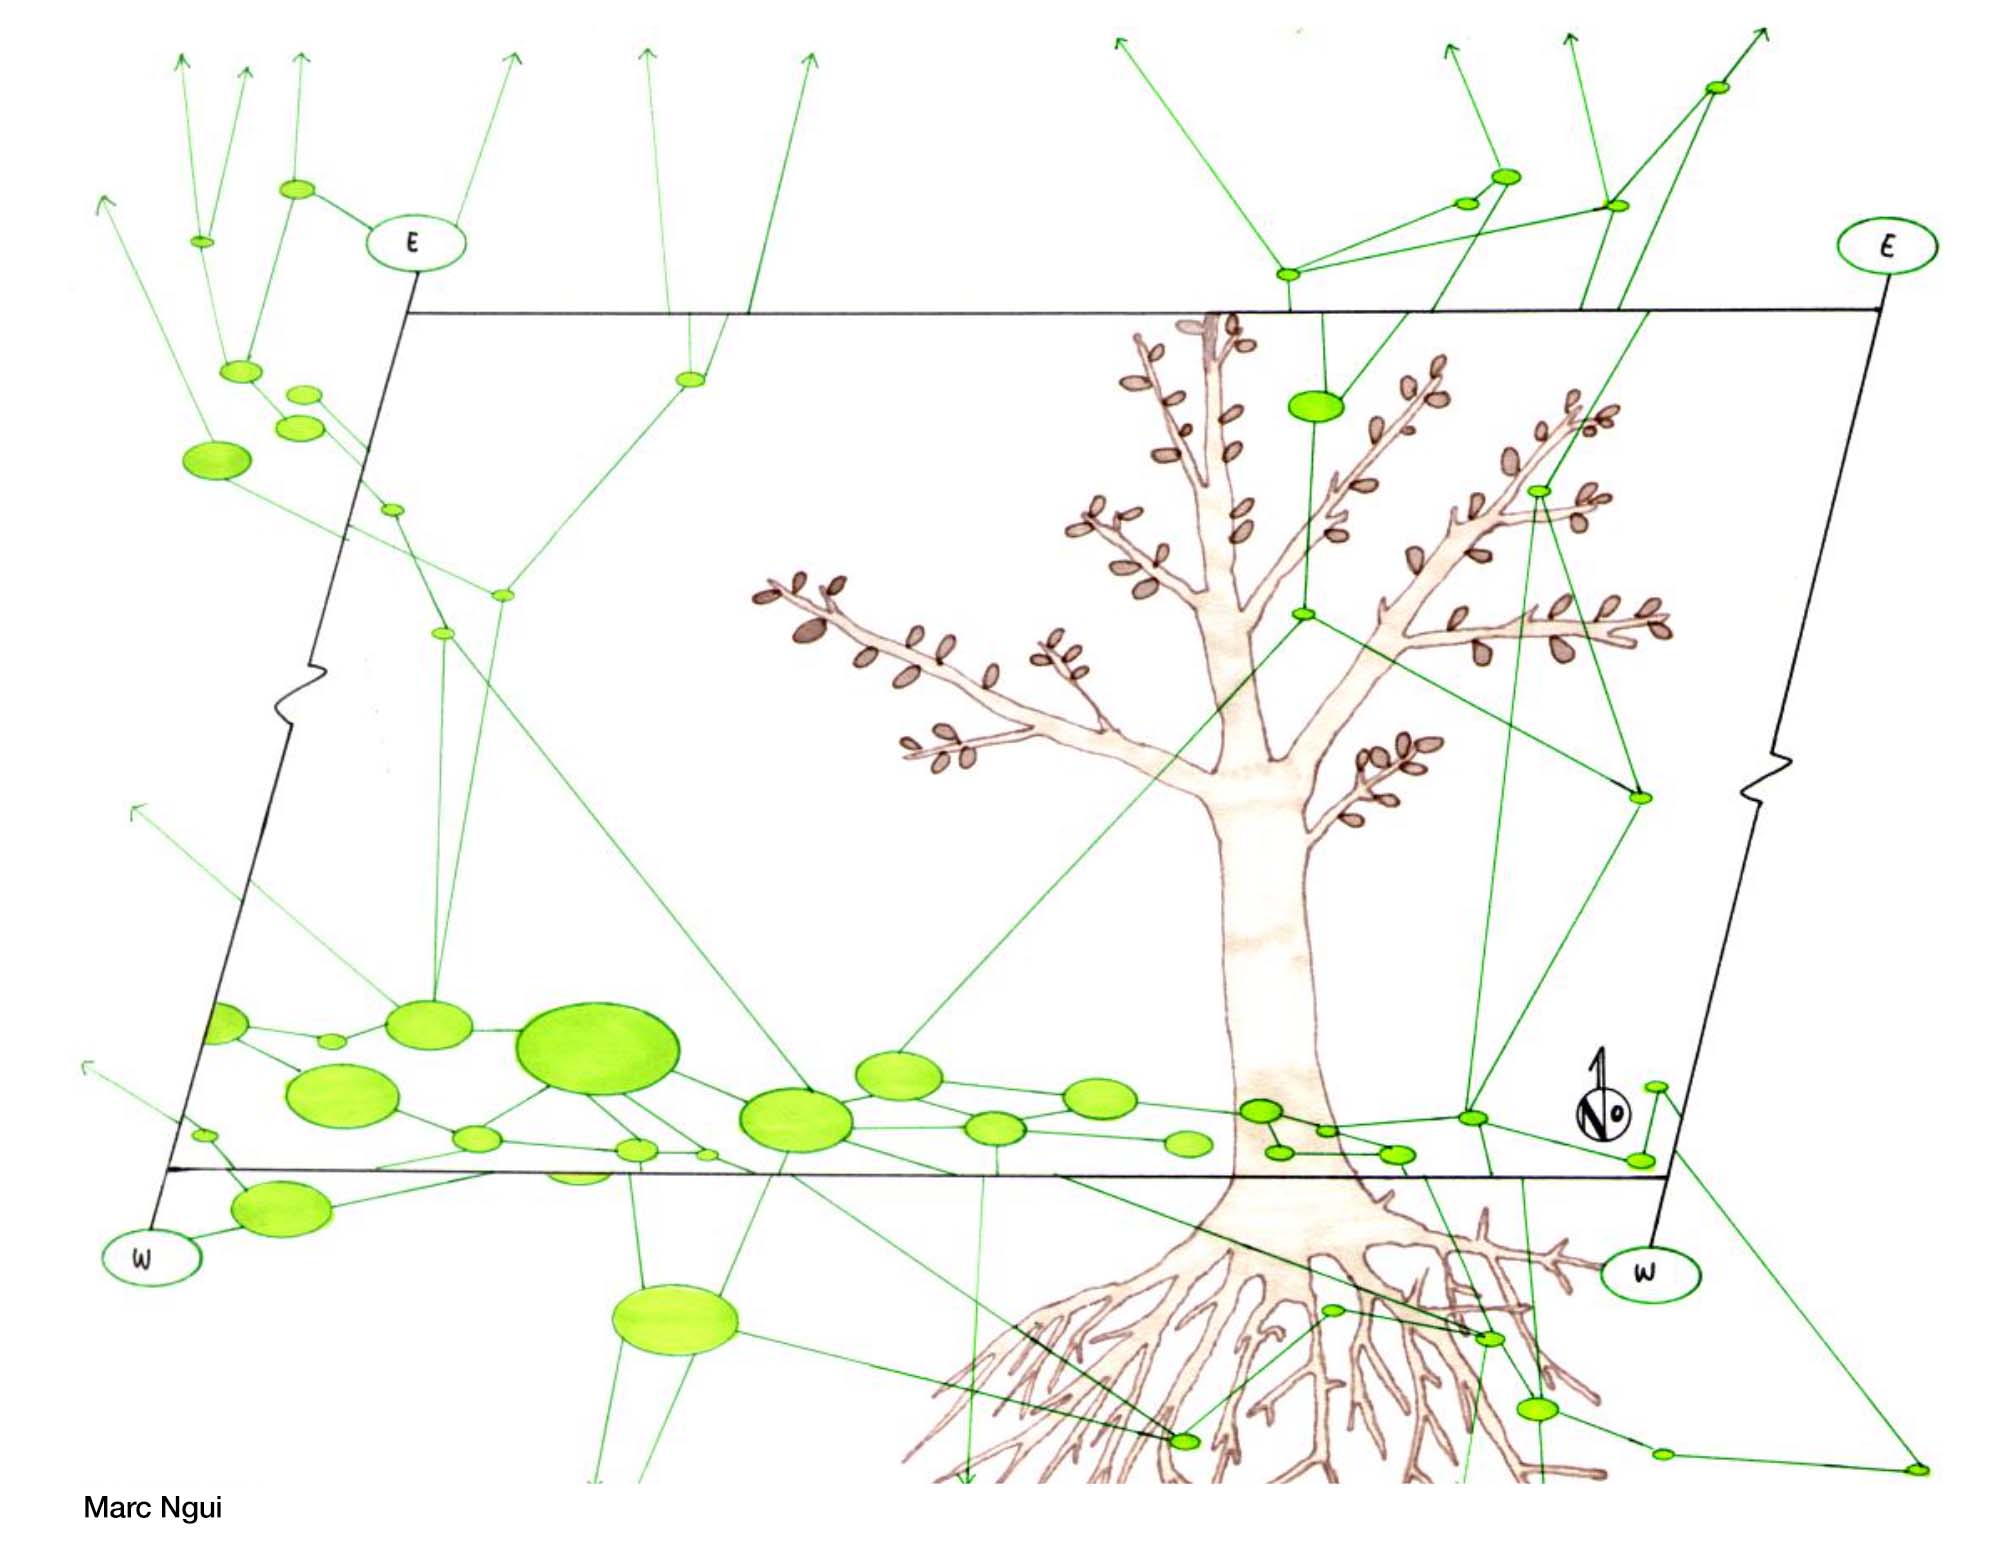 E
E
No
W
W
Marc Ngui